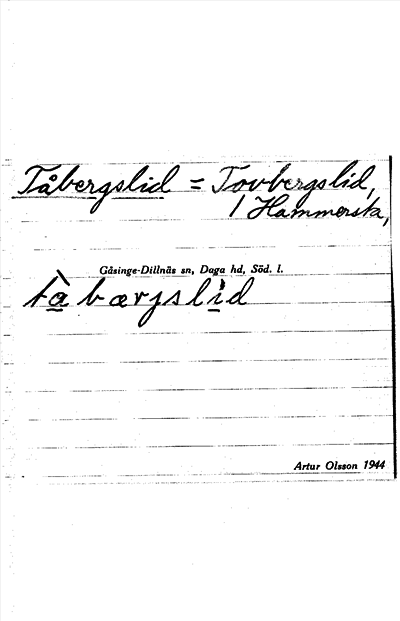 Tåbergslid = Tovbergslid,
1 Hammersta,
Gåsinge-Dillnäs sn, Daga hd, Söd. l.
tà bærjslìd
Artur Olsson 1944